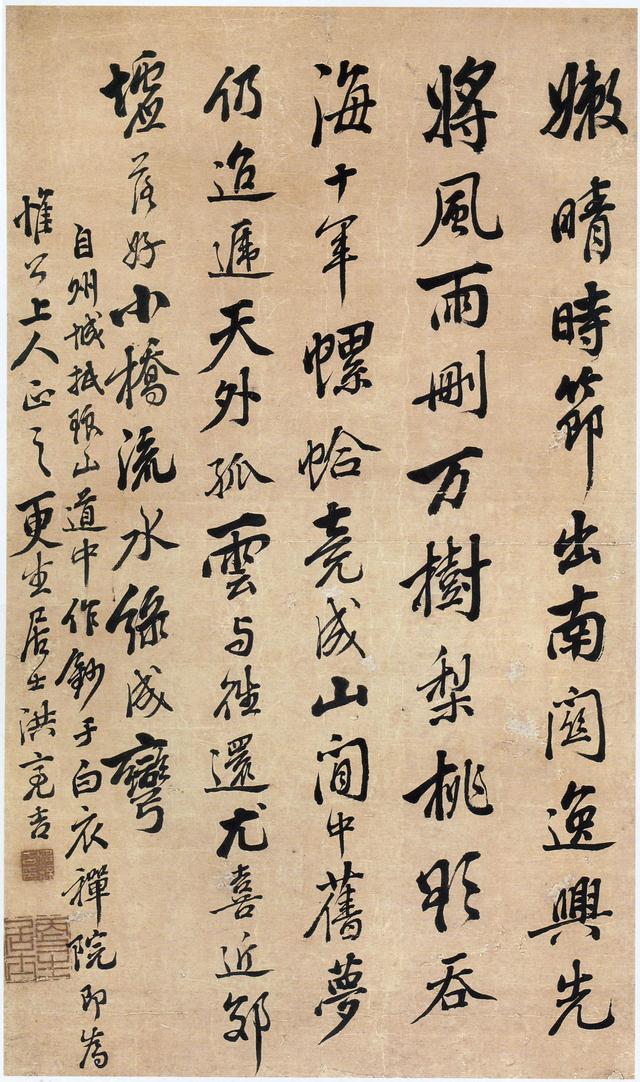 嫩晴時節出南闗逸興先
將風雨刪万樹梨桃欲吞
海十年螺蛤竟成山閒中舊夢
仍迢遞天外孤雲与往還尤喜近郊
墟落好小橋流水綠成彎
自州城抵狼山道中作鈔于白衣禪院即為
惟公上人正之更生居士洪亮吉